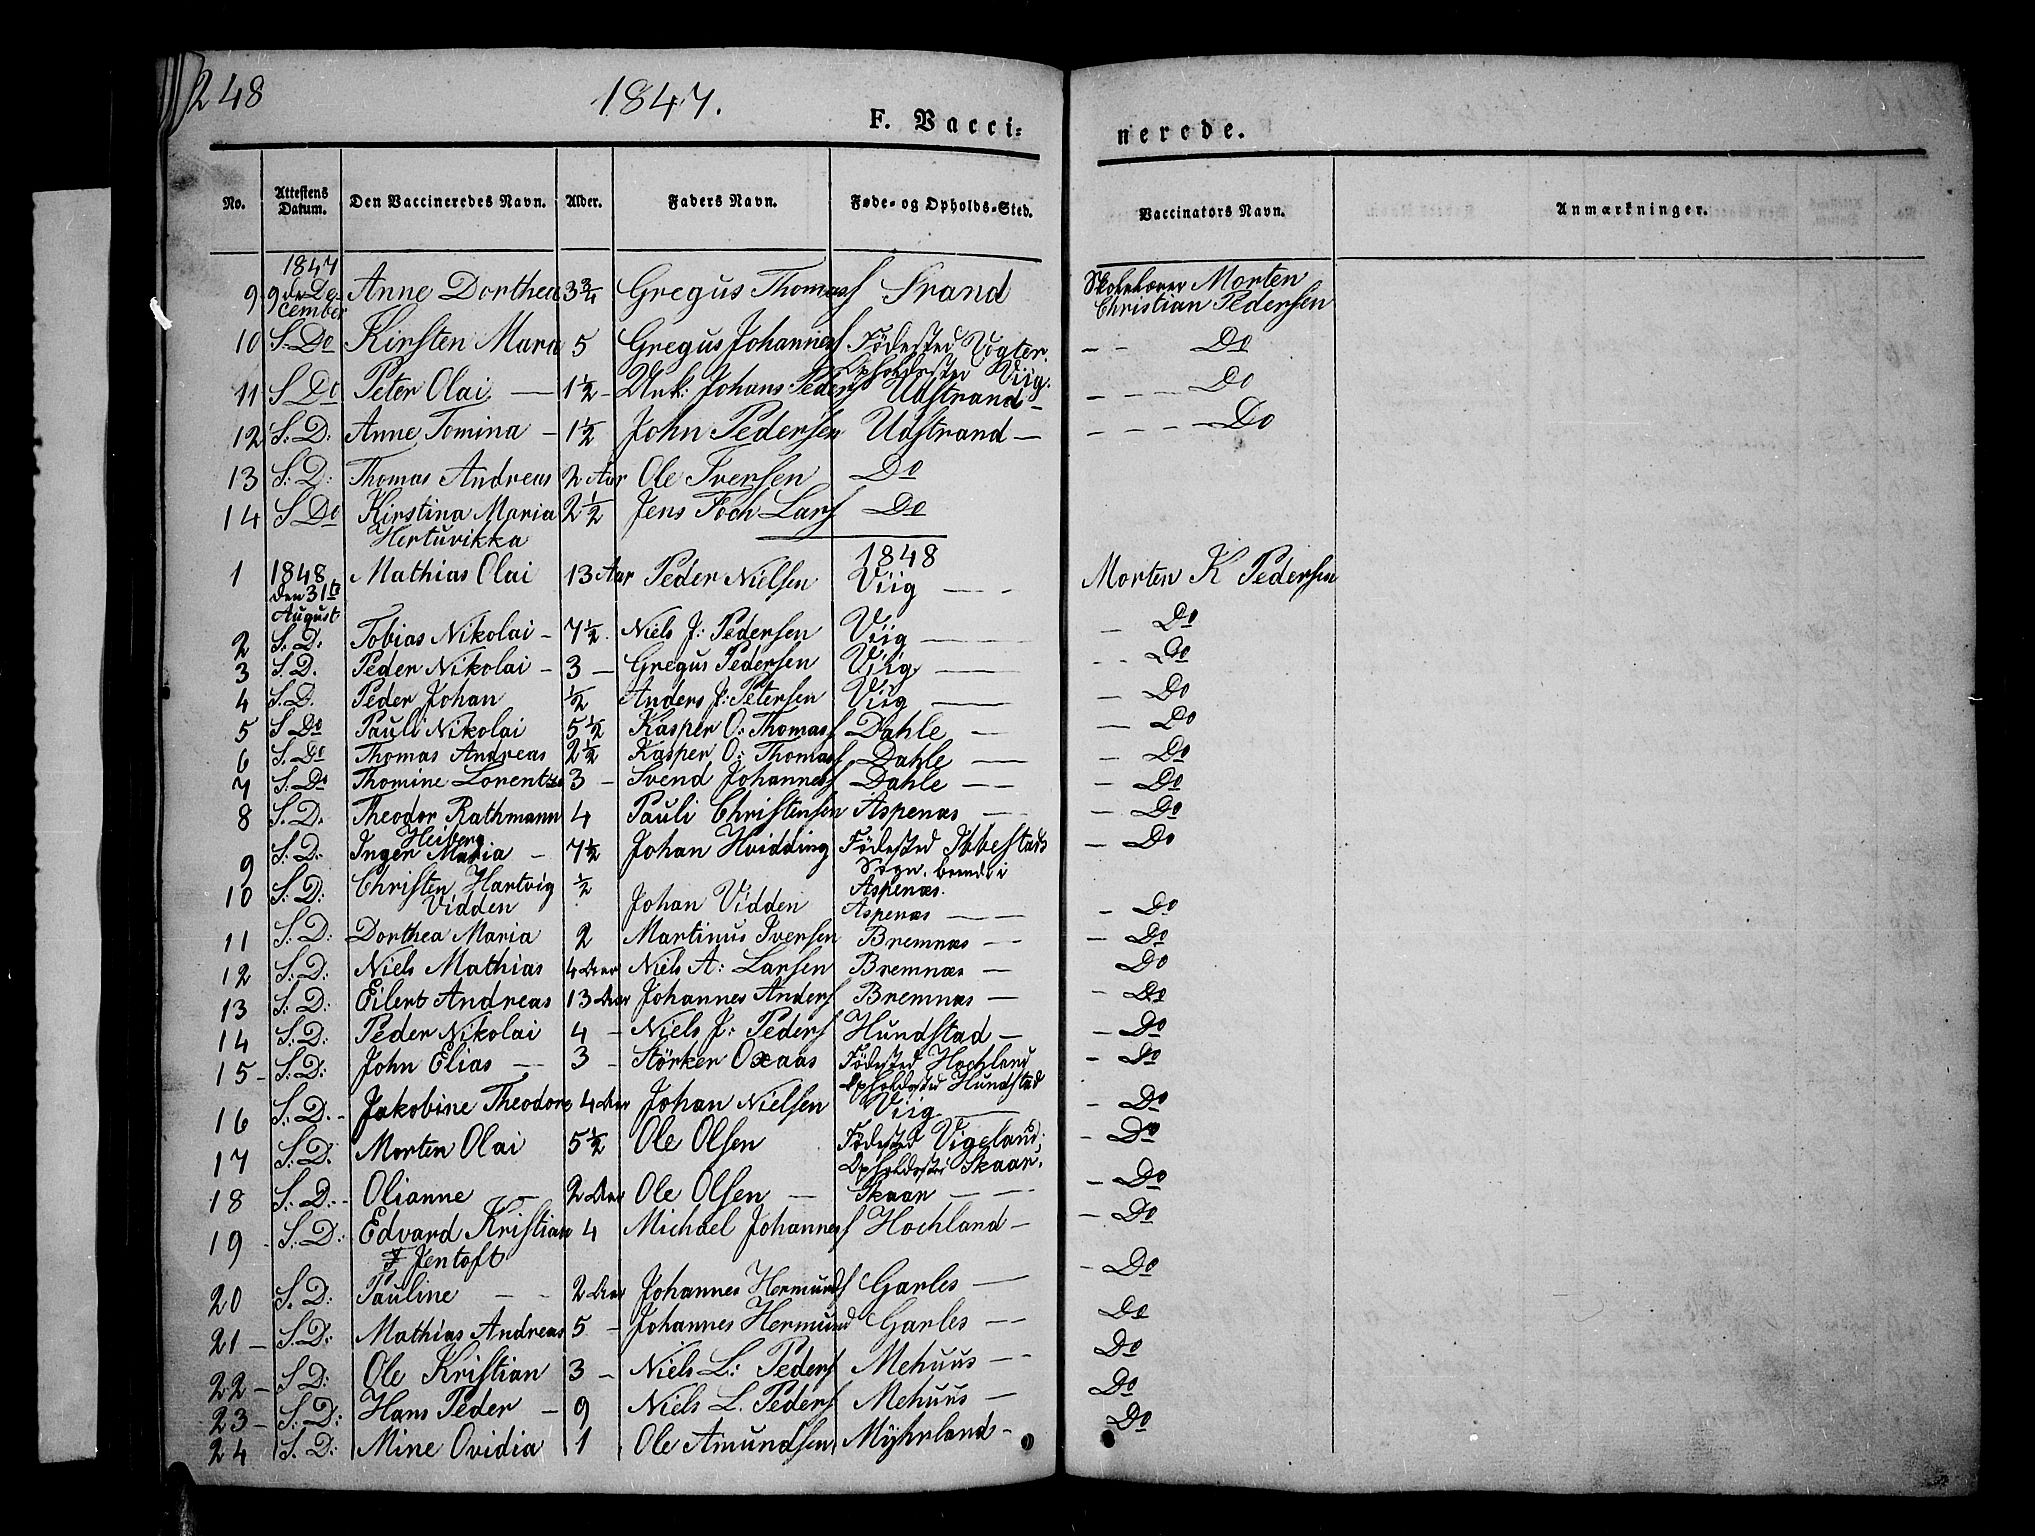 248
1847.
F. Vacci=
nerede.
No. Attestens Datum. Den Vaccineredes Navn. Alder. Faders Navn. Føde- og Opholds-Sted. Vaccinators Navn. Anmærkninger.
1847
9 9de De- Anne Dorthea 3¾ Gregus Thomass Strand Skolelærer Morten
cember Christian Pedersen
10 S. Do Kirsten Mara 5 Gregus Johanness Födested Vogter. – – Do
Opholdssted Viig.
11 S Do Peter Olai. — 1½ – Unk: Johans Peders Udstrand – – – – Do
12 S. D: Anne Tomina – 1½ John Pedersen Udstrand — – – – – Do
13 S. D: Thomas Andreas 2 Aar Ole Iversen Do
14 S Do Kirstina Maria 2½ Jens Foch Lars Do
Hertuvikka
1848
1 1848 Mathias Olai 13 Aar Peder Nielsen Viig — – Morten K Pedersen
den 31te
August
2 S. D. Tobias Nikolai – 7½ Niels J: Pedersen Viig — – Do
3 S. D. Peder Nikolai – 3 – Gregus Pedersen Viig — – – Do
4 S. D. Peder Johan ½ Anders J: Petersen Viig — – Do
5 S Do Pauli Nikolai 5½ Kasper O: Thomass Dahle – — Do
6 S. Do Thomas Andreas 2½ Kasper O: Thomass Dahle — – Do
7 S. Do Thomine Lorentze 3 – Svend Johanness Dahle — – – Do
8 S. D. Theodor Rathmann 4 Pauli Christensen Aspenæs — – – Do
Heiberg
9 S. D. Inger Maria – 7½ Johan Hvidding Födested Ibbestads – Do
Sogn,
10 S. D: Christen Hartvig ½ Aspenæs.
Vidden Johan Vidden Aspenæs — – – Do
11 S. D: Dorthea Maria 2 Martinus Iversen Bremnæs – – – Do
12 S. D: Niels Mathias 4 Aar Niels A: Larsen Bremnæs — Do
13 S: D: Eilert Andreas 13 Aar Johannes Anders Bremnæs — – Do
14 S: D: Peder Nikolai 4 – Niels J: Peders Hundstad – – Do
15 – S: D: John Elias — – 3 – Störker Oxaas Födested Hochland – Do
Opholdssted Hundstad
16 S: D. – Jakobine Theodore 4 Aar Johan Nielsen Viig — – Do
17 S: D. Morten Olai 5½ Ole Olsen Födested Vigeland; – Do
Opholdssted Skaar.
18 S: D. – Olianne – 2 Aar Ole Olsen — Skaar — – – Do
19 – S: D: Edvard Kristian 4 Michael Johanness Hochland – – Do
Jentoft
20 S. D: Pauline – – 2 Aar Johannes Hermunds Garles — – Do
21 – S. D: Mathias Andreas 5 – Johannes Hermund Garles – – Do
22 – S D: Ole Kristian 3 – Niels L: Peders Mehuus – – Do
23 – S: D: Hans Peder – 9 Niels L. Peders Mehuus – Do
24 S. D: Mine Ovidia 1 Ole Amundsen Myhrland – Do